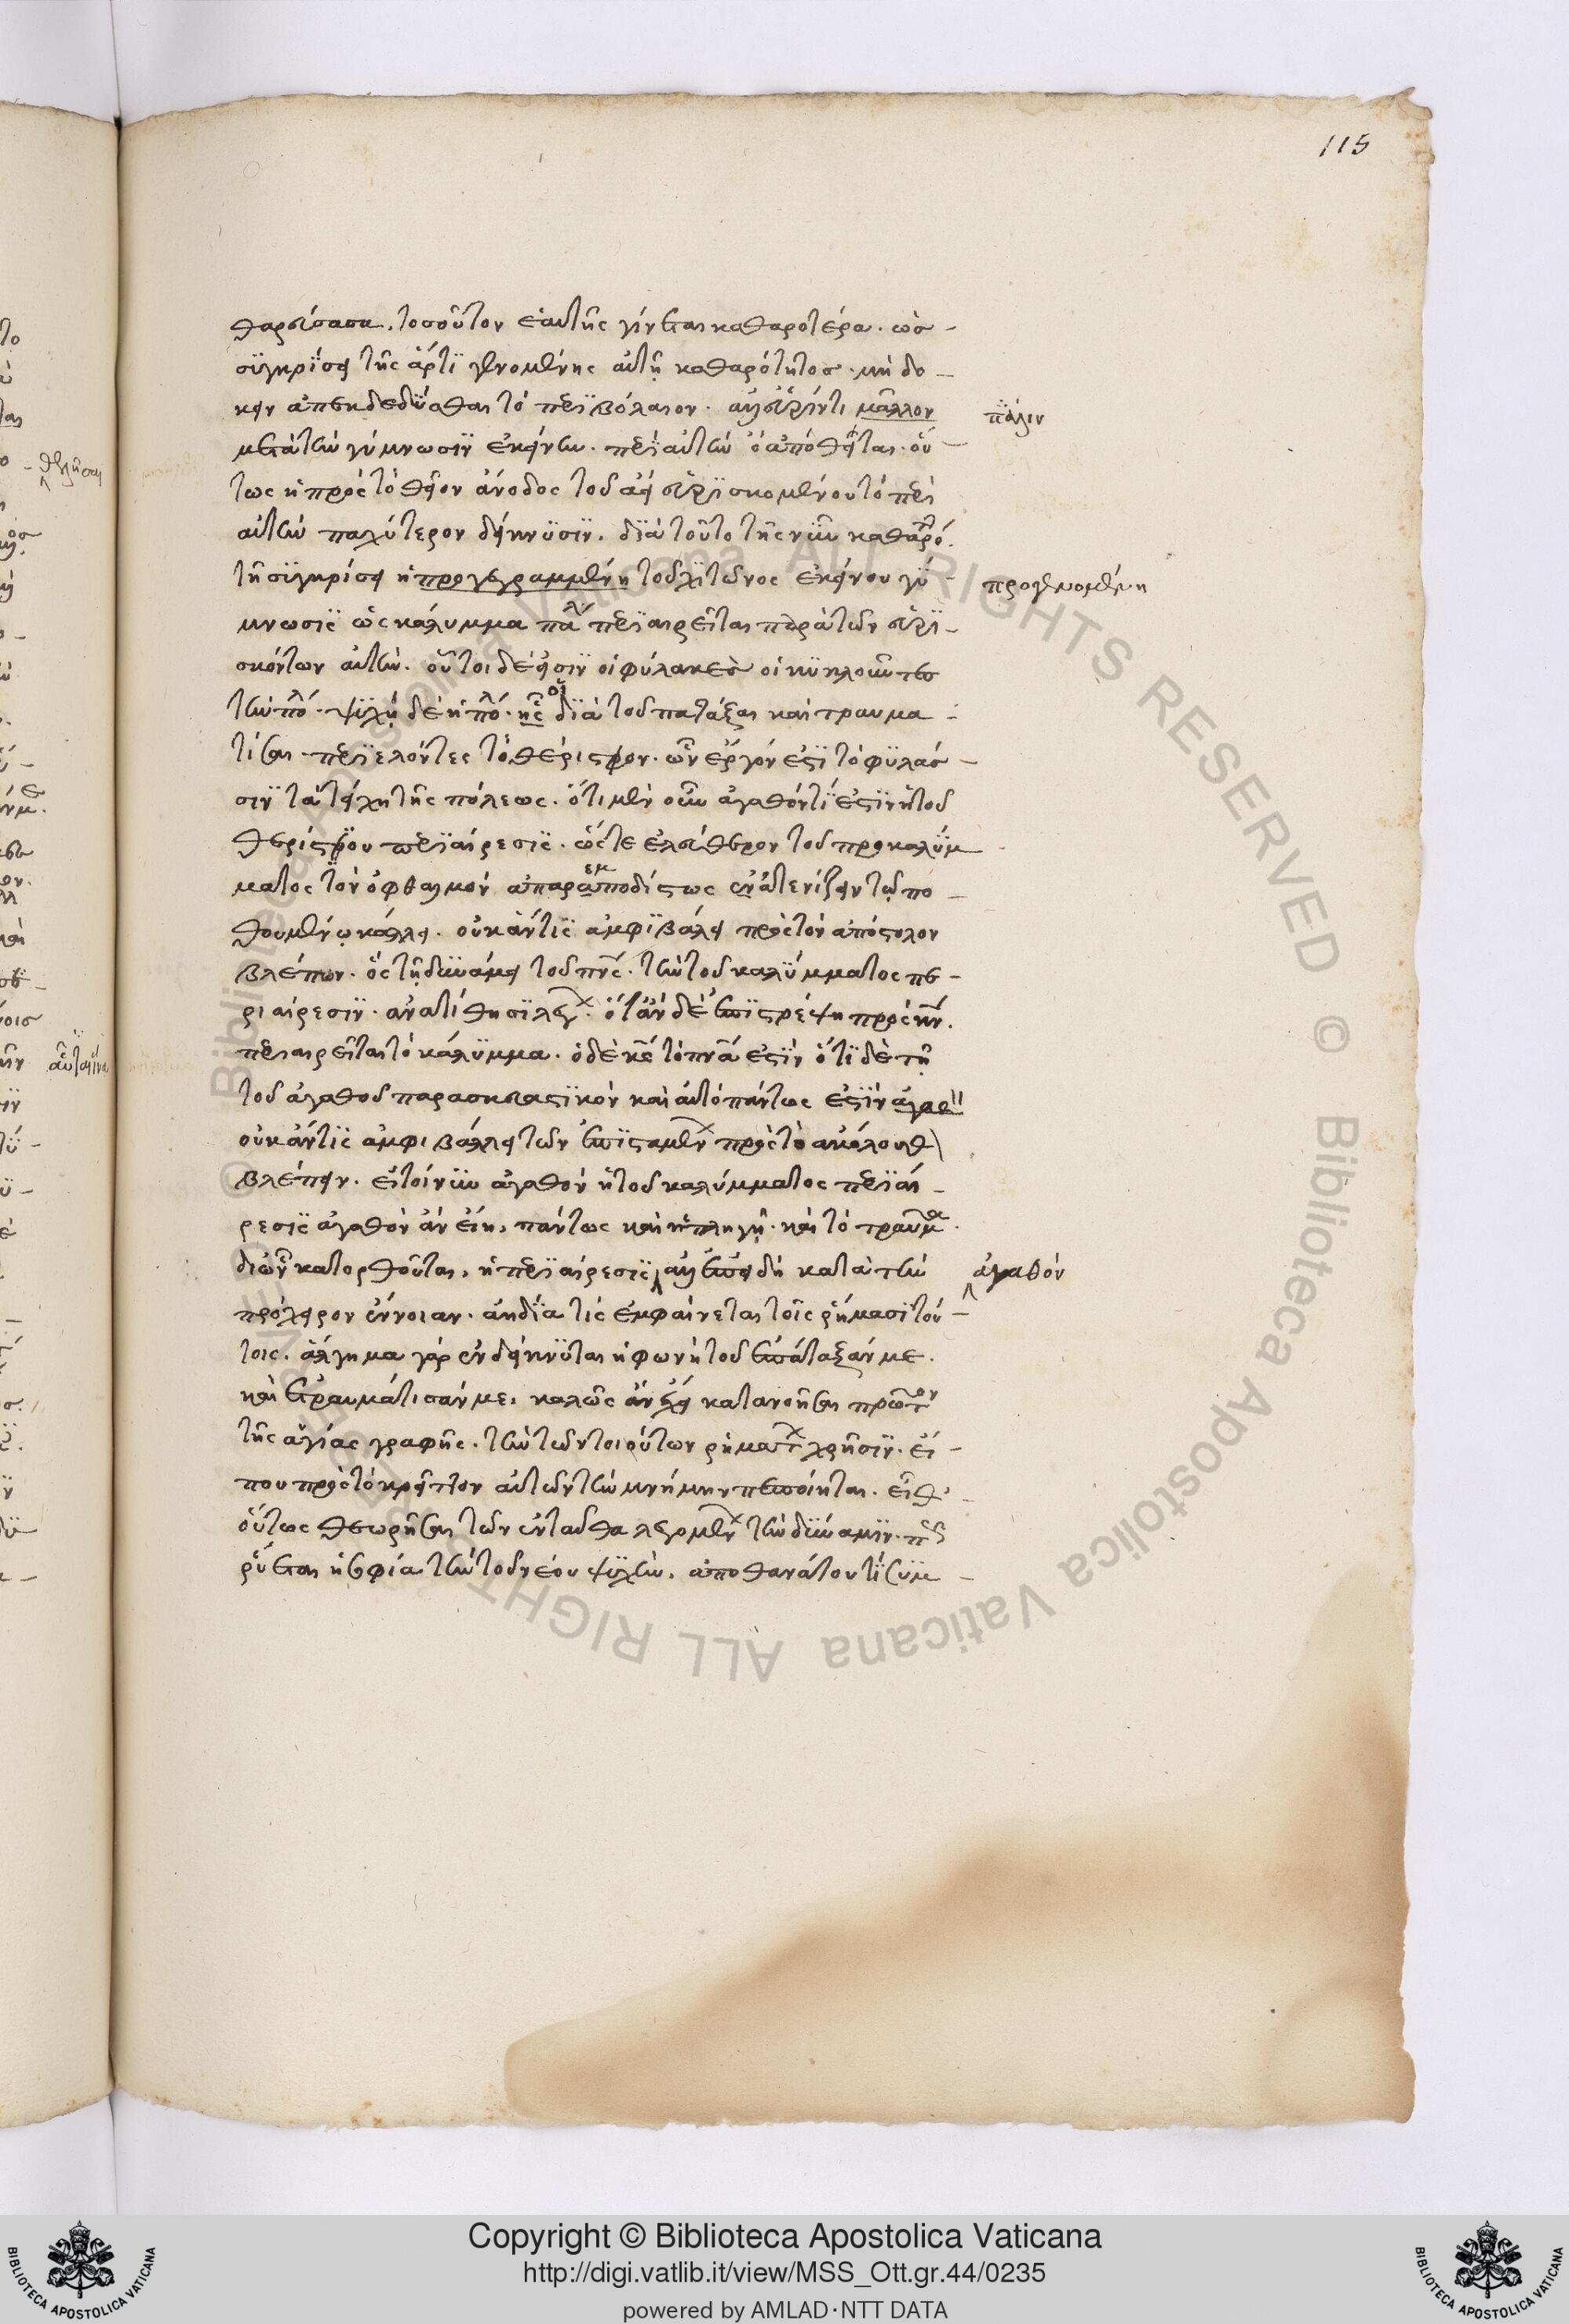 115
θαρεύσασα, τοσοῦτον ἑαυτῆς γίνεται καθαροτέρα. ὡς
συγκρίσει τῆς ἄρτι γενομένης αὐτῇ καθαρότητος. μὴ δο-
κεῖν ἀπεκδεδύσθαι τὸ περιβόλαιον. ἀλλ᾽ εὑρίσκει μᾶλλον πάλιν
μετὰ τὴν γύμνωσιν ἐκείνην. περὶ αὐτὴν ὃ ἀποθεῖται. οὕ-
τως ἡ πρὸς τὸ θεῖον ἄνοδος τοῦ ἀεὶ εὑρισκομένου τὸ περὶ
αὐτὴν παχύτερον δείκνυσιν. διὰ τοῦτο τῆς νῦν καθαρό.
τῇ συγκρίσει ἡ προγεγραμμένη τοῦ χιτῶνος ἐκείνου γύ- προγενομένη
μνωσις ὡς κάλυμμα πάλιν περιαιρεῖται παρὰ τῶν εὑρι-
σκόντων αὐτήν. οὗτοι δέ εἰσιν οἱ φύλακες οἱ κυκλοῦντες
τὴν πόλ. ψυχὴ δὲ ἡ πόλ. ἧς οἳ διὰ τοῦ πατάξαι καὶ τραυμα-
τίσαι. περιελόντες τὸ θέριστρον. ὧν ἔργον ἐστὶ τὸ φυλάσ-
σιν τὰ τείχη τῆς πόλεως. ὅτι μὲν οὖν ἀγαθόν τί ἐστιν ἡ τοῦ
θερίστρου περιαίρεσις. ὥστε ἐλεύθερον τοῦ προκαλύμ-
ματος τὸν ὀφθαλμὸν ἀπαραεμποδίστως ἐνατενίζειν τῷ πο-
θουμένῳ κάλλει. οὐκ ἄν τις ἀμφιβάλοι πρὸς τὸν ἀπόστολον
βλέπων. ὃς τῇ δυνάμει τοῦ πνς. τὴν τοῦ καλύμματος πε-
ριαίρεσιν. ἀνατίθησι λέγων. ὅταν δὲ ἐπιστρέψῃ πρὸς κν.
περιαιρεῖται τὸ κάλυμμα. ὁ δὲ κς τὸ πνα ἐστιν ὅτι δὲ τὸ
τοῦ ἀγαθοῦ παρασκευαστικὸν καὶ αὐτὸ πάντως ἐστὶν ἀγαθ
οὐκ ἄν τις ἀμφιβάλλοι τῶν ἐπισταμένων πρὸς τὸ ἀκόλουθ
βλέπειν. εἰ τοίνυν ἀγαθὸν ἡ τοῦ καλύμματος περιαί-
ρεσις ἀγαθὸν ἂν εἴη, πάντως καὶ ἡ πληγή. καὶ τὸ τραῦμα.
δι᾽ ὧν κατορθοῦται, ἡ περιαίρεσις ἀλλ᾽ ἐπειδὴ κατὰ τὴν ἀγαθόν
πρόχειρον ἔννοιαν. ἀηδία τίς ἐμφαίνεται τοῖς ῥήμασι τού-
τοις. ἄλγημα γὰρ ἐνδείκνυται ἡ φωνὴ τοῦ ἐπάταξάν με.
καὶ ἐτραυμάτισάν με, καλῶς ἂν ἔχοι κατανοῆσαι πρῶτον
τῆς ἁγίας γραφῆς. τὴν τῶν τοιούτων ῥημάτων χρῆσιν. εἴ-
που πρὸς τὸ κρεῖττον αὐτῶν τὴν μνήμην πεποίηται. εἶθ᾽
οὕτως θεωρῆσαι τῶν ἐνταῦθα λεγομένων τὴν δύναμιν. πῶς
ῥύεται ἡ σοφία τὴν τοῦ νέου ψυχήν, ἀπο θανάτου τί συμ-